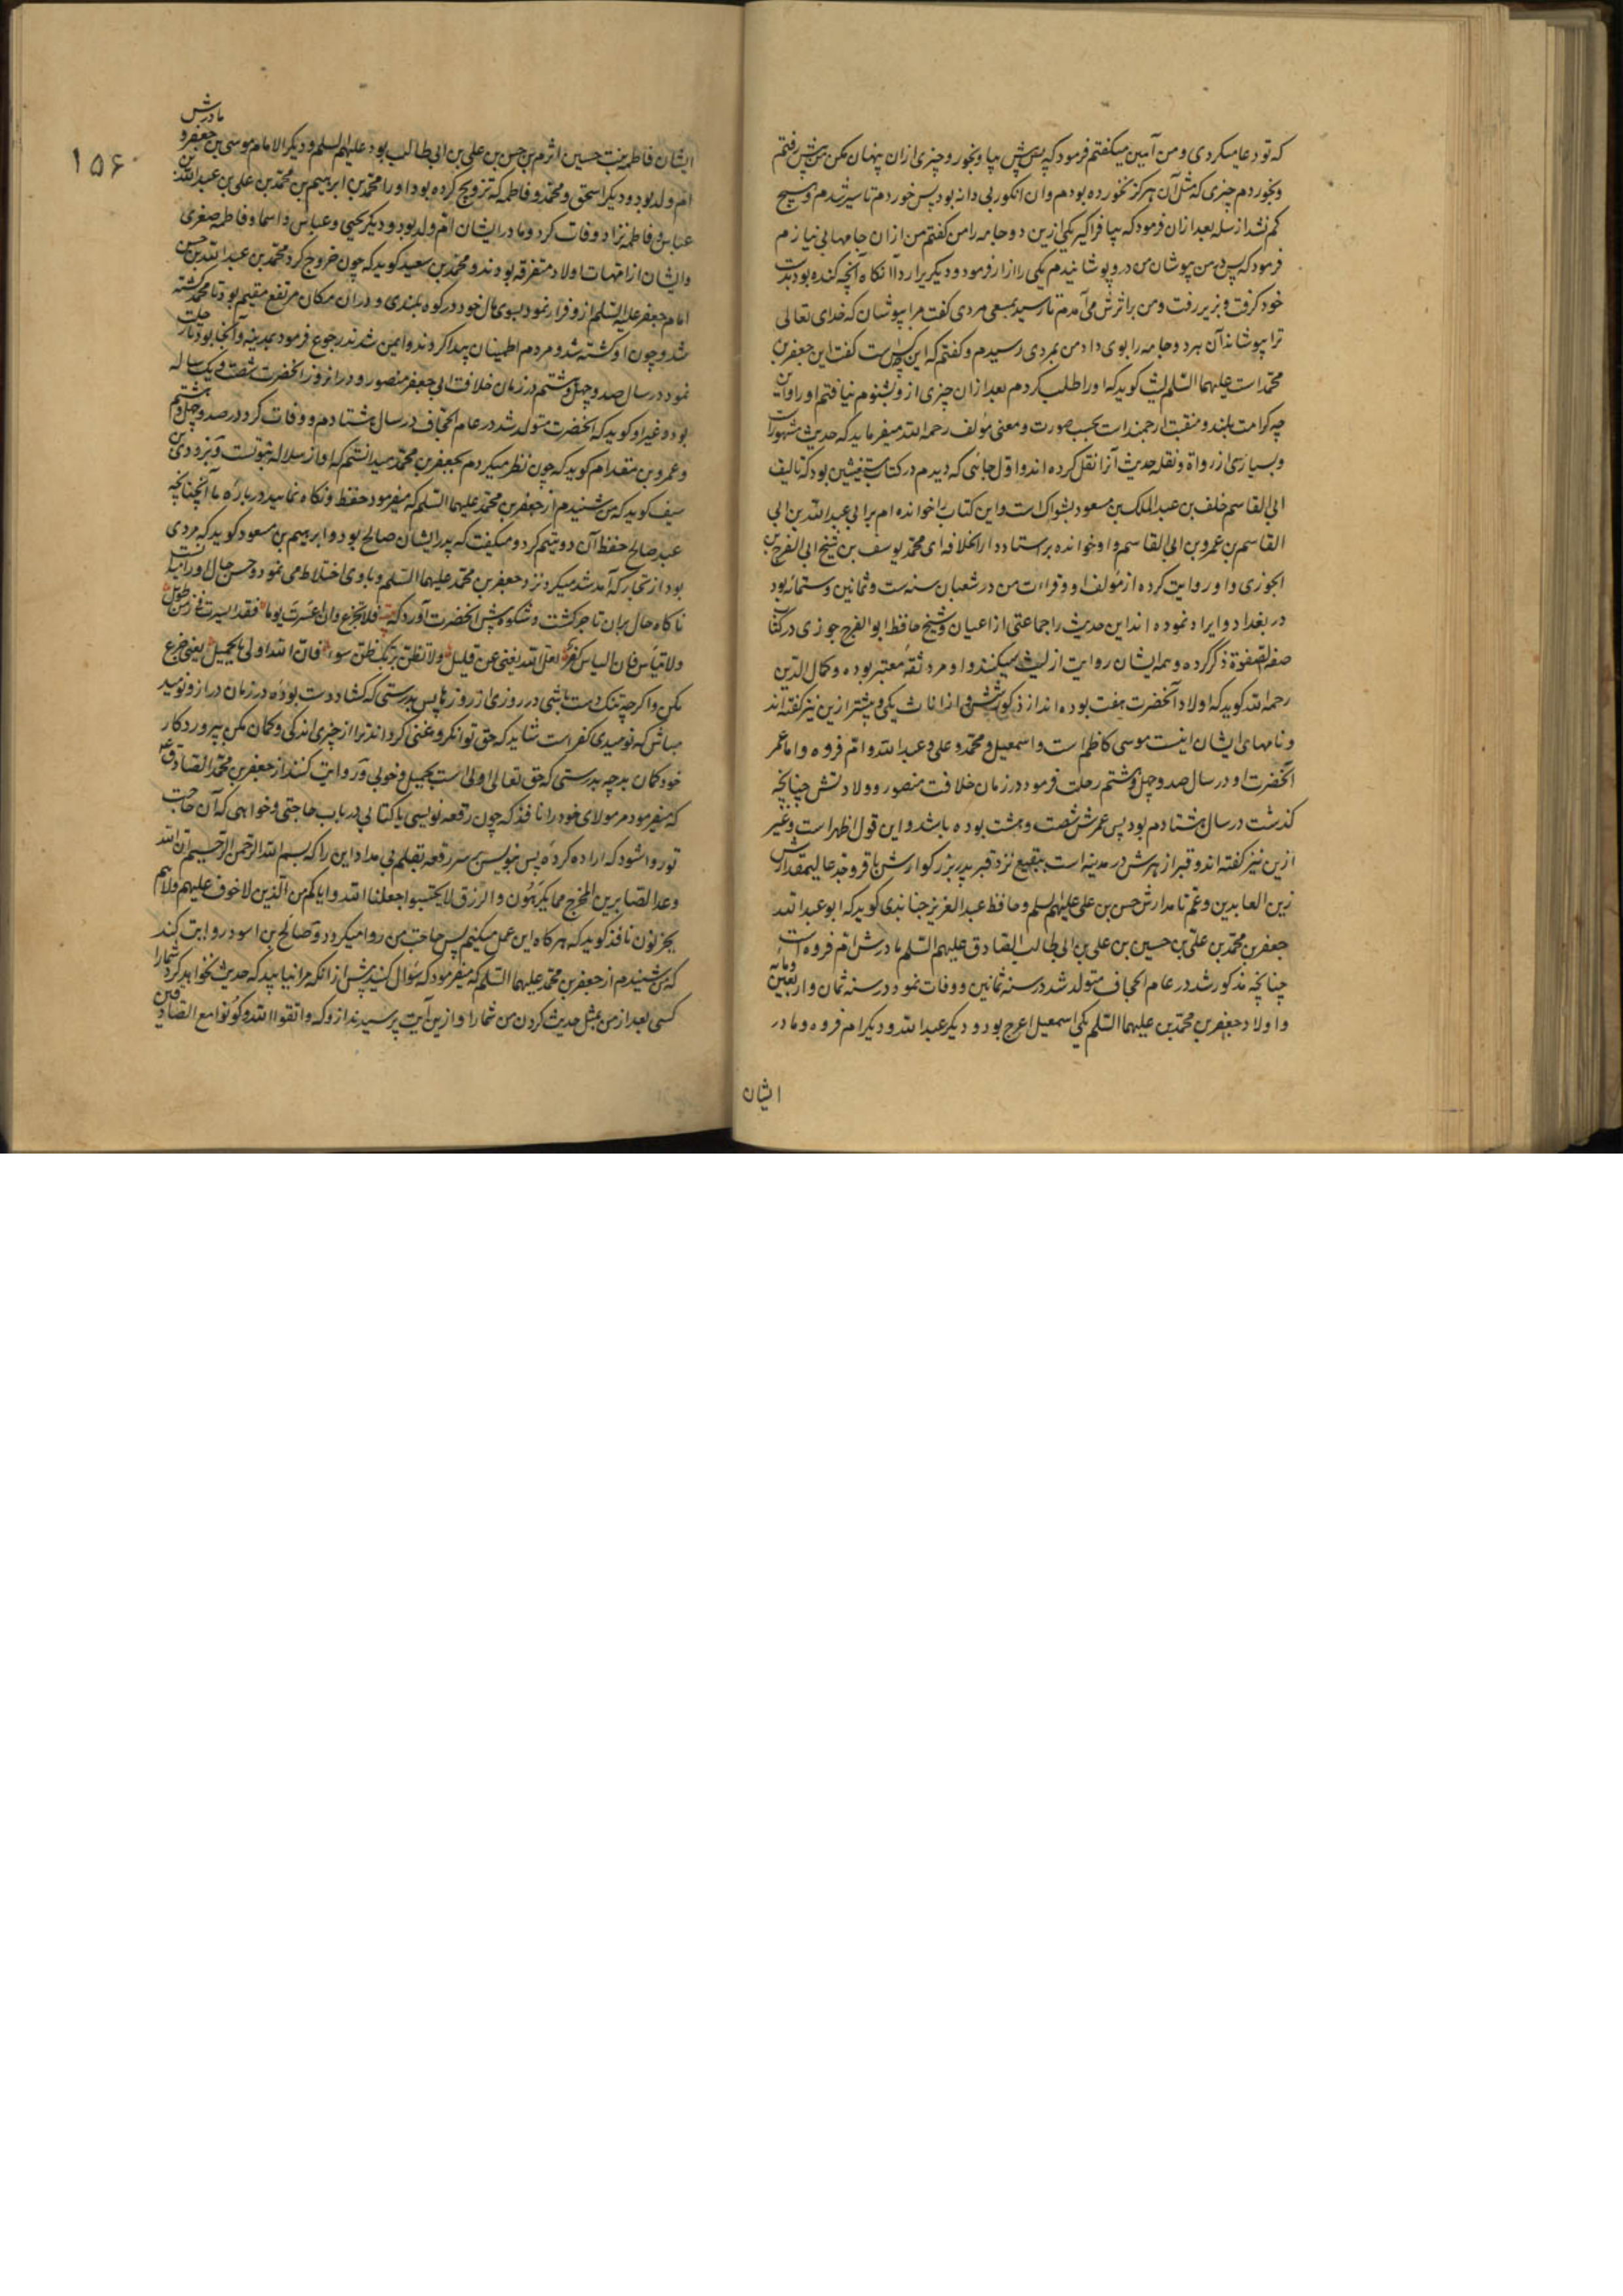 که تو دعا میکردی و من آمین میکفتم فرمود که پس پیش بیا و بخور و چیزی ازان پنهان مکن من پیش رفتم
و بخوردم چیزی که مثل آن هرکز نخورده بودم و ان انکور بی دانه بود پس خوردم تا سیر شدم و هیچ
کم نشد از سله بعد ازان فرمود که بیا فراکیر یکی ازین دو جامه را من کفتم من ازان جامها بی نیازم
فرمود که پس در من بپوشان من درو پوشانیدم یکی را ازار فرمود و دیکر برا ردا آنکاه آنچه کنده بود بدست
خود کرفت و بزیر رفت و من بر اثرش می آمدم تا رسید بمسعی مردی کفت مرا بپوشان که خدای تعالی
ترا بپوشاند آن هر دو جامه را بوی داد من بمردی رسیدم و کفتم که این کیست کفت این جعفر بن
محمد است علیهما السلم لیث کوید که او را طلب کردم بعد ازان چیزی ازو بشنوم نیافتم او را و این
چه کرامت بلند و منقبت ارجمند است بحسب صورت و معنی مؤلف رحمه الله میفرماید که حدیث مشهور است
و بسیاری از رواة و نقله حدیث آنرا نقل کرده اند و اول جائی که دیدم در کتاب مستغیثین بود که تالیف
ابی القاسم خلف بن عبد الملک بن مسعود بشواک است و این کتاب را خوانده ام بر ابی عبد الله بن ابی
القاسم بن عمرو بن ابی القاسم و او خوانده بر استاد دار الخلافه ای محمد یوسف بن شیخ ابی الفرج بن
الجوزی و او روایت کرده از مؤلف او و قراءت من در شعبان سنه ست و ثمانین و ستمائه بود
در بغداد و ایراد نموده اند این حدیث را جماعتی از اعیان و شیخ حافظ ابو الفرج جوزی در کتاب
صفة الصفوة ذکر کرده و همه ایشان روایت از لیث میکنند و او مرد ثقه معتبر بوده و کمال الدین
رحمه الله کوید که اولاد آنحضرت هفت بوده اند از ذکور شش و از اناث یکی و بیشتر ازین نیز کفته اند
و نامهای ایشان اینست موسی کاظم است و اسمعیل و محمد و علی و عبد الله و ام فروه و اما عمر
آنحضرت او در سال صد و چهل و هشتم رحلت فرمود در زمان خلافت منصور و ولادتش چنانچه
کذشت در سال هشتادم بود پس عمرش شصت و هشت بوده باشد و این قول اظهر است و غیر
ازین نیز کفته اند و قبر ازهرش در مدینه است ببقیع نزد قبر پدر بزرکوارش باقر و جد عالیمقدارش
زین العابدین و عم نامدارش حسن بن علی علیهم السلم و حافظ عبد العزیز جنابذی کوید که ابو عبد الله
جعفر بن محمد بن علی بن حسین بن علی بن ابی طالب الصادق علیهم السلم مادرش ام فروه است
چنانچه مذکور شد در عام الحجاف متولد شد در سنه ثمانین و وفات نمود در سنه ثمان و اربعین و مائه
و اولاد جعفر بن محمد بن علیهما السلم یکی اسمعیل اعرج بود و دیکر عبد الله و دیکر ام فروه و مادر
ایشان
۱۵۶
ایشان فاطمه بنت حسین اثرم بن حسن بن علی بن ابی طالب بود علیهم السلم و دیکر الامام موسی بن جعفر و مادرش
ام ولد بود و دیکر اسحق و محمد و فاطمه که تزویج کرده بود او را محمد بن ابرهیم بن محمد بن علی بن عبد الله بن
عباس و فاطمه نزد او وفات کرد و مادر ایشان ام ولد بود و دیکر یحیی و عباس و اسما و فاطمه صغری
و ایشان از امهات اولاد متفرقه بودند و محمد بن سعید کوید که چون خروج کرد محمد بن عبد الله بن حسن
امام جعفر علیه السلم ازو فرار نمود بسوی مال خود در کوه بلندی و دران مکان مرتفع مقیم بود تا محمد کشته
شد و چون او کشته شد و مردم اطمینان پیدا کردند و ایمن شدند رجوع فرمود بمدینه و آنجا بود تا رحلت
نمود در سال صد و چهل و هشتم در زمان خلافت ابی جعفر منصور و در انروز آنحضرت شصت و یک ساله
بود و غیر او کوید که آنحضرت متولد شد در عام الحجاف در سال هشتادم و وفات کرد در صد و چهل و هشتم
و عمرو بن مقدام کوید که چون نظر میکردم بجعفر بن محمد میدانستم که او از سلاله نبوتست و برذون بن
سیف کوید که من شنیدم از جعفر بن محمد علیهما السلم که میفرمود حفظ و نکاه نمائید در باره ما آنچنانچه
عبد صالح حفظ آن دو یتیم کرد و میکفت که پدر ایشان صالح بود و ابرهیم بن مسعود کوید که مردی
بود از تجار که آمد شد میکرد نزد جعفر بن محمد علیهما السلم و با وی اختلاط می نمود و حسن حال او را
ناکاه حال بران تاجر کشت و شکوه پیش آنحضرت آورد کفت فلا تجزع وان اعسرت یوما فقد ایسرت فی زمن طویل
ولا تیأس فان الیاس کفر لعل الله یغنی عن قلیل ولا تظنن بربک ظن سوء فان الله اولی بالجمیل یعنی جزع
مکن و اکر چه تنک دست باشی در روزی از روزها پس بدرستی که کشاد دست بوده در زمان دراز و نومید
مباش که نومیدی کفر است شاید که حق توانکر و غنی کرداند ترا از چیزی اندکی و کمان مکن بپروردکار
خود کمان بد چه بدرستی که حق تعالی اولی است بجمیل و خوبی و روایت کنند از جعفر بن محمد الصادق ع
که میفرمود مر مولای خود را نافذ که چون رقعه نویسی یا کتابی در باب حاجتی و خواهی که آن حاجت
تو روا شود که اراده کرده پس بنویس بر سر رقعه بقلم بی مداد این را که بسم الله الرحمن الرحیم ان الله
وعد الصابرین المخرج مما یکرهون والرزق لا یحتسبوا جعلنا الله وایاکم من الذین لا خوف علیهم ولا هم
یحزنون نافذ کوید که هر کاه این عمل میکنم پس حاجت من روا میکردد و صالح بن اسود روایت کند
که من شنیدم از جعفر بن محمد علیهما السلم که میفرمود که سؤال کنید پیش ازانکه مرا نیابید که حدیث نخواهد کرد شما را
کسی بعد از من بمثل حدیث کردن من شما را و ازین آیت پرسیدند ازو که واتقوا الله وکونوا مع الصادقین